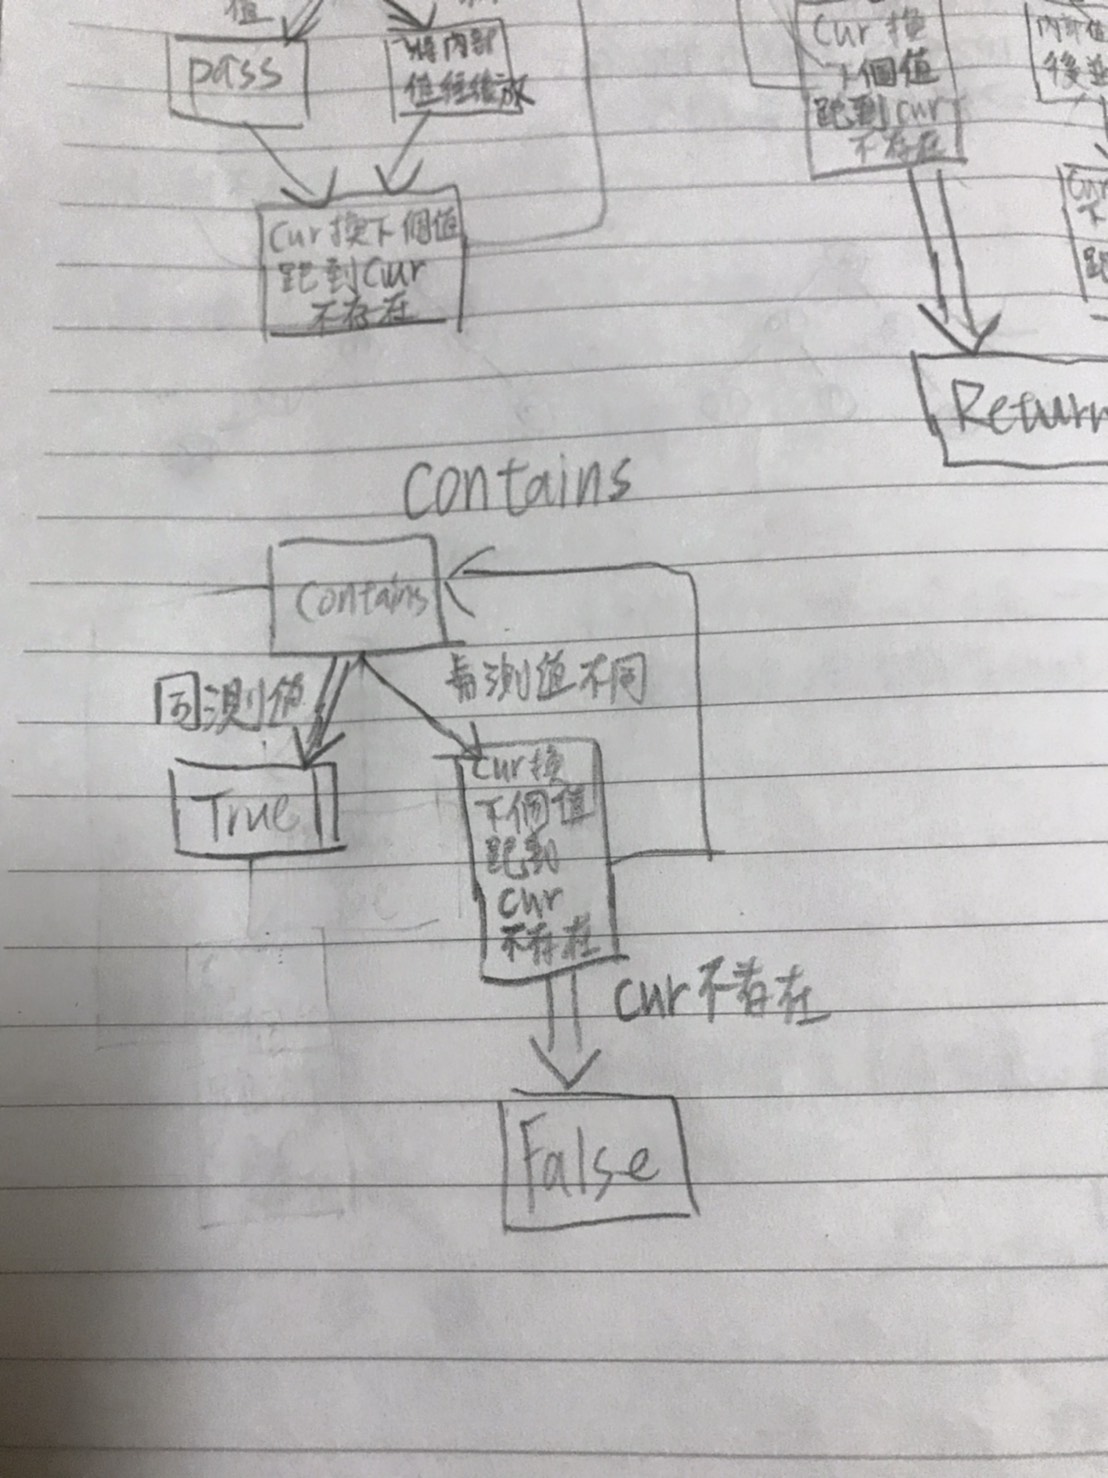 值
pass
將內部
值往後放
Cur換下個值
跑到Cur
不存在
Cur 換
下個值
跑到Cur
不存在
內部值
Cur
下
跑
Return
Contains
Contains
同測值
與測值不同
True
Cur換
下個值
跑到
Cur
不存在
Cur不存在
False